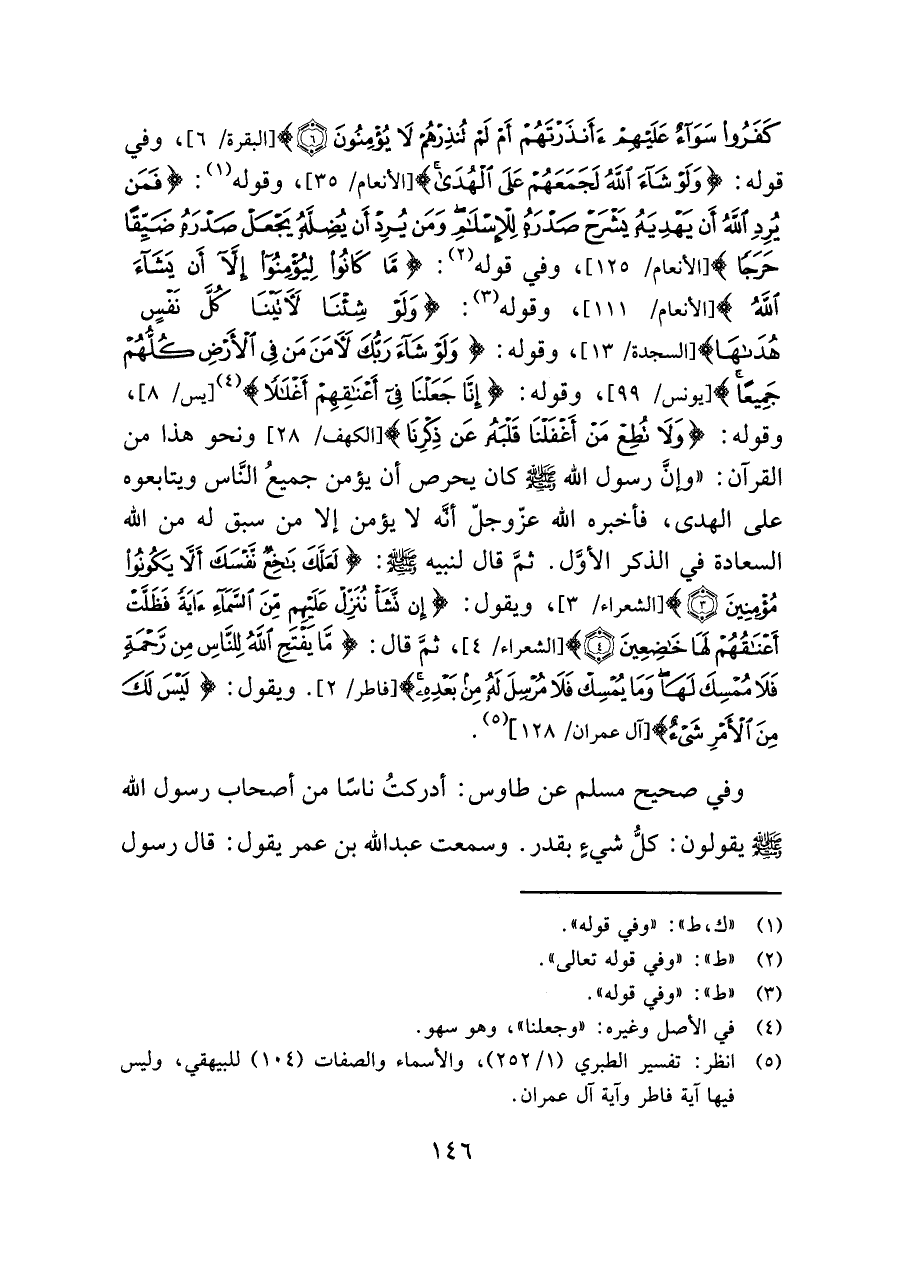 كَفَرُوا۟ سَوَآءٌ عَلَيْهِمْ ءَأَنذَرْتَهُمْ أَمْ لَمْ تُنذِرْهُمْ لَا يُؤْمِنُونَ ۝٦ ﴾[البقرة/ ٦]، وفي
قوله: ﴿ وَلَوْ شَآءَ ٱللَّهُ لَجَمَعَهُمْ عَلَى ٱلْهُدَىٰ ۚ﴾[الأنعام/ ٣٥]، وقوله(١): ﴿ فَمَن
يُرِدِ ٱللَّهُ أَن يَهْدِيَهُۥ يَشْرَحْ صَدْرَهُۥ لِلْإِسْلَٰمِ ۖ وَمَن يُرِدْ أَن يُضِلَّهُۥ يَجْعَلْ صَدْرَهُۥ ضَيِّقًا
حَرَجًا ﴾[الأنعام/ ١٢٥]، وفي قوله(٢): ﴿ مَّا كَانُوا۟ لِيُؤْمِنُوٓا۟ إِلَّآ أَن يَشَآءَ
ٱللَّهُ ﴾[الأنعام/ ١١١]، وقوله(٣): ﴿ وَلَوْ شِئْنَا لَءَاتَيْنَا كُلَّ نَفْسٍ
هُدَىٰهَا﴾[السجدة/ ١٣]، وقوله: ﴿ وَلَوْ شَآءَ رَبُّكَ لَءَامَنَ مَن فِى ٱلْأَرْضِ كُلُّهُمْ
جَمِيعًا ۚ﴾[يونس/ ٩٩]، وقوله: ﴿ إِنَّا جَعَلْنَا فِىٓ أَعْنَٰقِهِمْ أَغْلَٰلًا ﴾(٤)[يس/ ٨]،
وقوله: ﴿ وَلَا تُطِعْ مَنْ أَغْفَلْنَا قَلْبَهُۥ عَن ذِكْرِنَا ﴾[الكهف/ ٢٨] ونحو هذا من
القرآن: «وإنَّ رسول الله ﷺ كان يحرص أن يؤمن جميعُ النَّاس ويتابعوه
على الهدى، فأخبره الله عزّوجلّ أنَّه لا يؤمن إلا من سبق له من الله
السعادة في الذكر الأوَّل. ثمَّ قال لنبيه ﷺ: ﴿ لَعَلَّكَ بَٰخِعٌ نَّفْسَكَ أَلَّا يَكُونُوا۟
مُؤْمِنِينَ ۝٣ ﴾[الشعراء/ ٣]، ويقول: ﴿ إِن نَّشَأْ نُنَزِّلْ عَلَيْهِم مِّنَ ٱلسَّمَآءِ ءَايَةً فَظَلَّتْ
أَعْنَٰقُهُمْ لَهَا خَٰضِعِينَ ۝٤ ﴾[الشعراء/ ٤]، ثمَّ قال: ﴿ مَّا يَفْتَحِ ٱللَّهُ لِلنَّاسِ مِن رَّحْمَةٍ
فَلَا مُمْسِكَ لَهَا ۖ وَمَا يُمْسِكْ فَلَا مُرْسِلَ لَهُۥ مِنۢ بَعْدِهِۦ ۚ﴾[فاطر/ ٢]. ويقول: ﴿ لَيْسَ لَكَ
مِنَ ٱلْأَمْرِ شَىْءٌ﴾[آل عمران/ ١٢٨](٥).
وفي صحيح مسلم عن طاوس: أدركتُ ناسًا من أصحاب رسول الله
ﷺ يقولون: كلُّ شيءٍ بقدر. وسمعت عبدالله بن عمر يقول: قال رسول
(١) «ك،ط»: «وفي قوله».
(٢) «ط»: «وفي قوله تعالى».
(٣) «ط»: «وفي قوله».
(٤) في الأصل وغيره: «وجعلنا»، وهو سهو.
(٥) انظر: تفسير الطبري (١/ ٢٥٢)، والأسماء والصفات (١٠٤) للبيهقي، وليس
فيها آية فاطر وآية آل عمران.
١٤٦